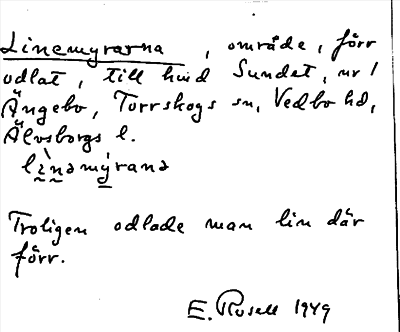 Linemyrarna, område, förr
odlat, till hvid Sundet, nr 1
Ängebo, Torrskogs sn, Vedbo hd,
Älvsborgs l.
lìnəmýranə
Troligen odlade man lin där
förr.
E. Rosell 1949